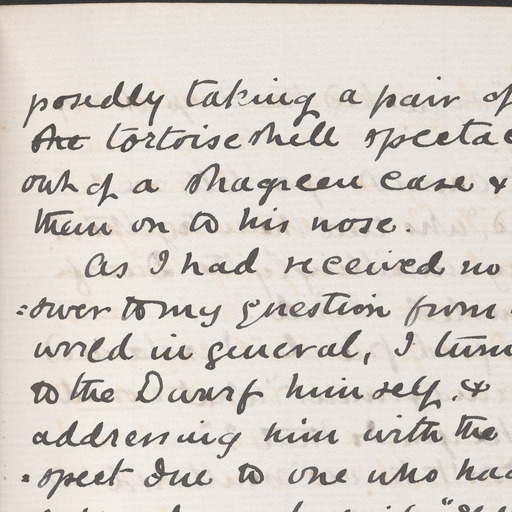 posedly taking a pair of
the tortoise shell spectac
out of a shagreen case &
them on to his nose.
As I had received no
=swer to my question from
world in general, I turn
to the Dwarf himself, &
addressing him with the
=spect due to one who had